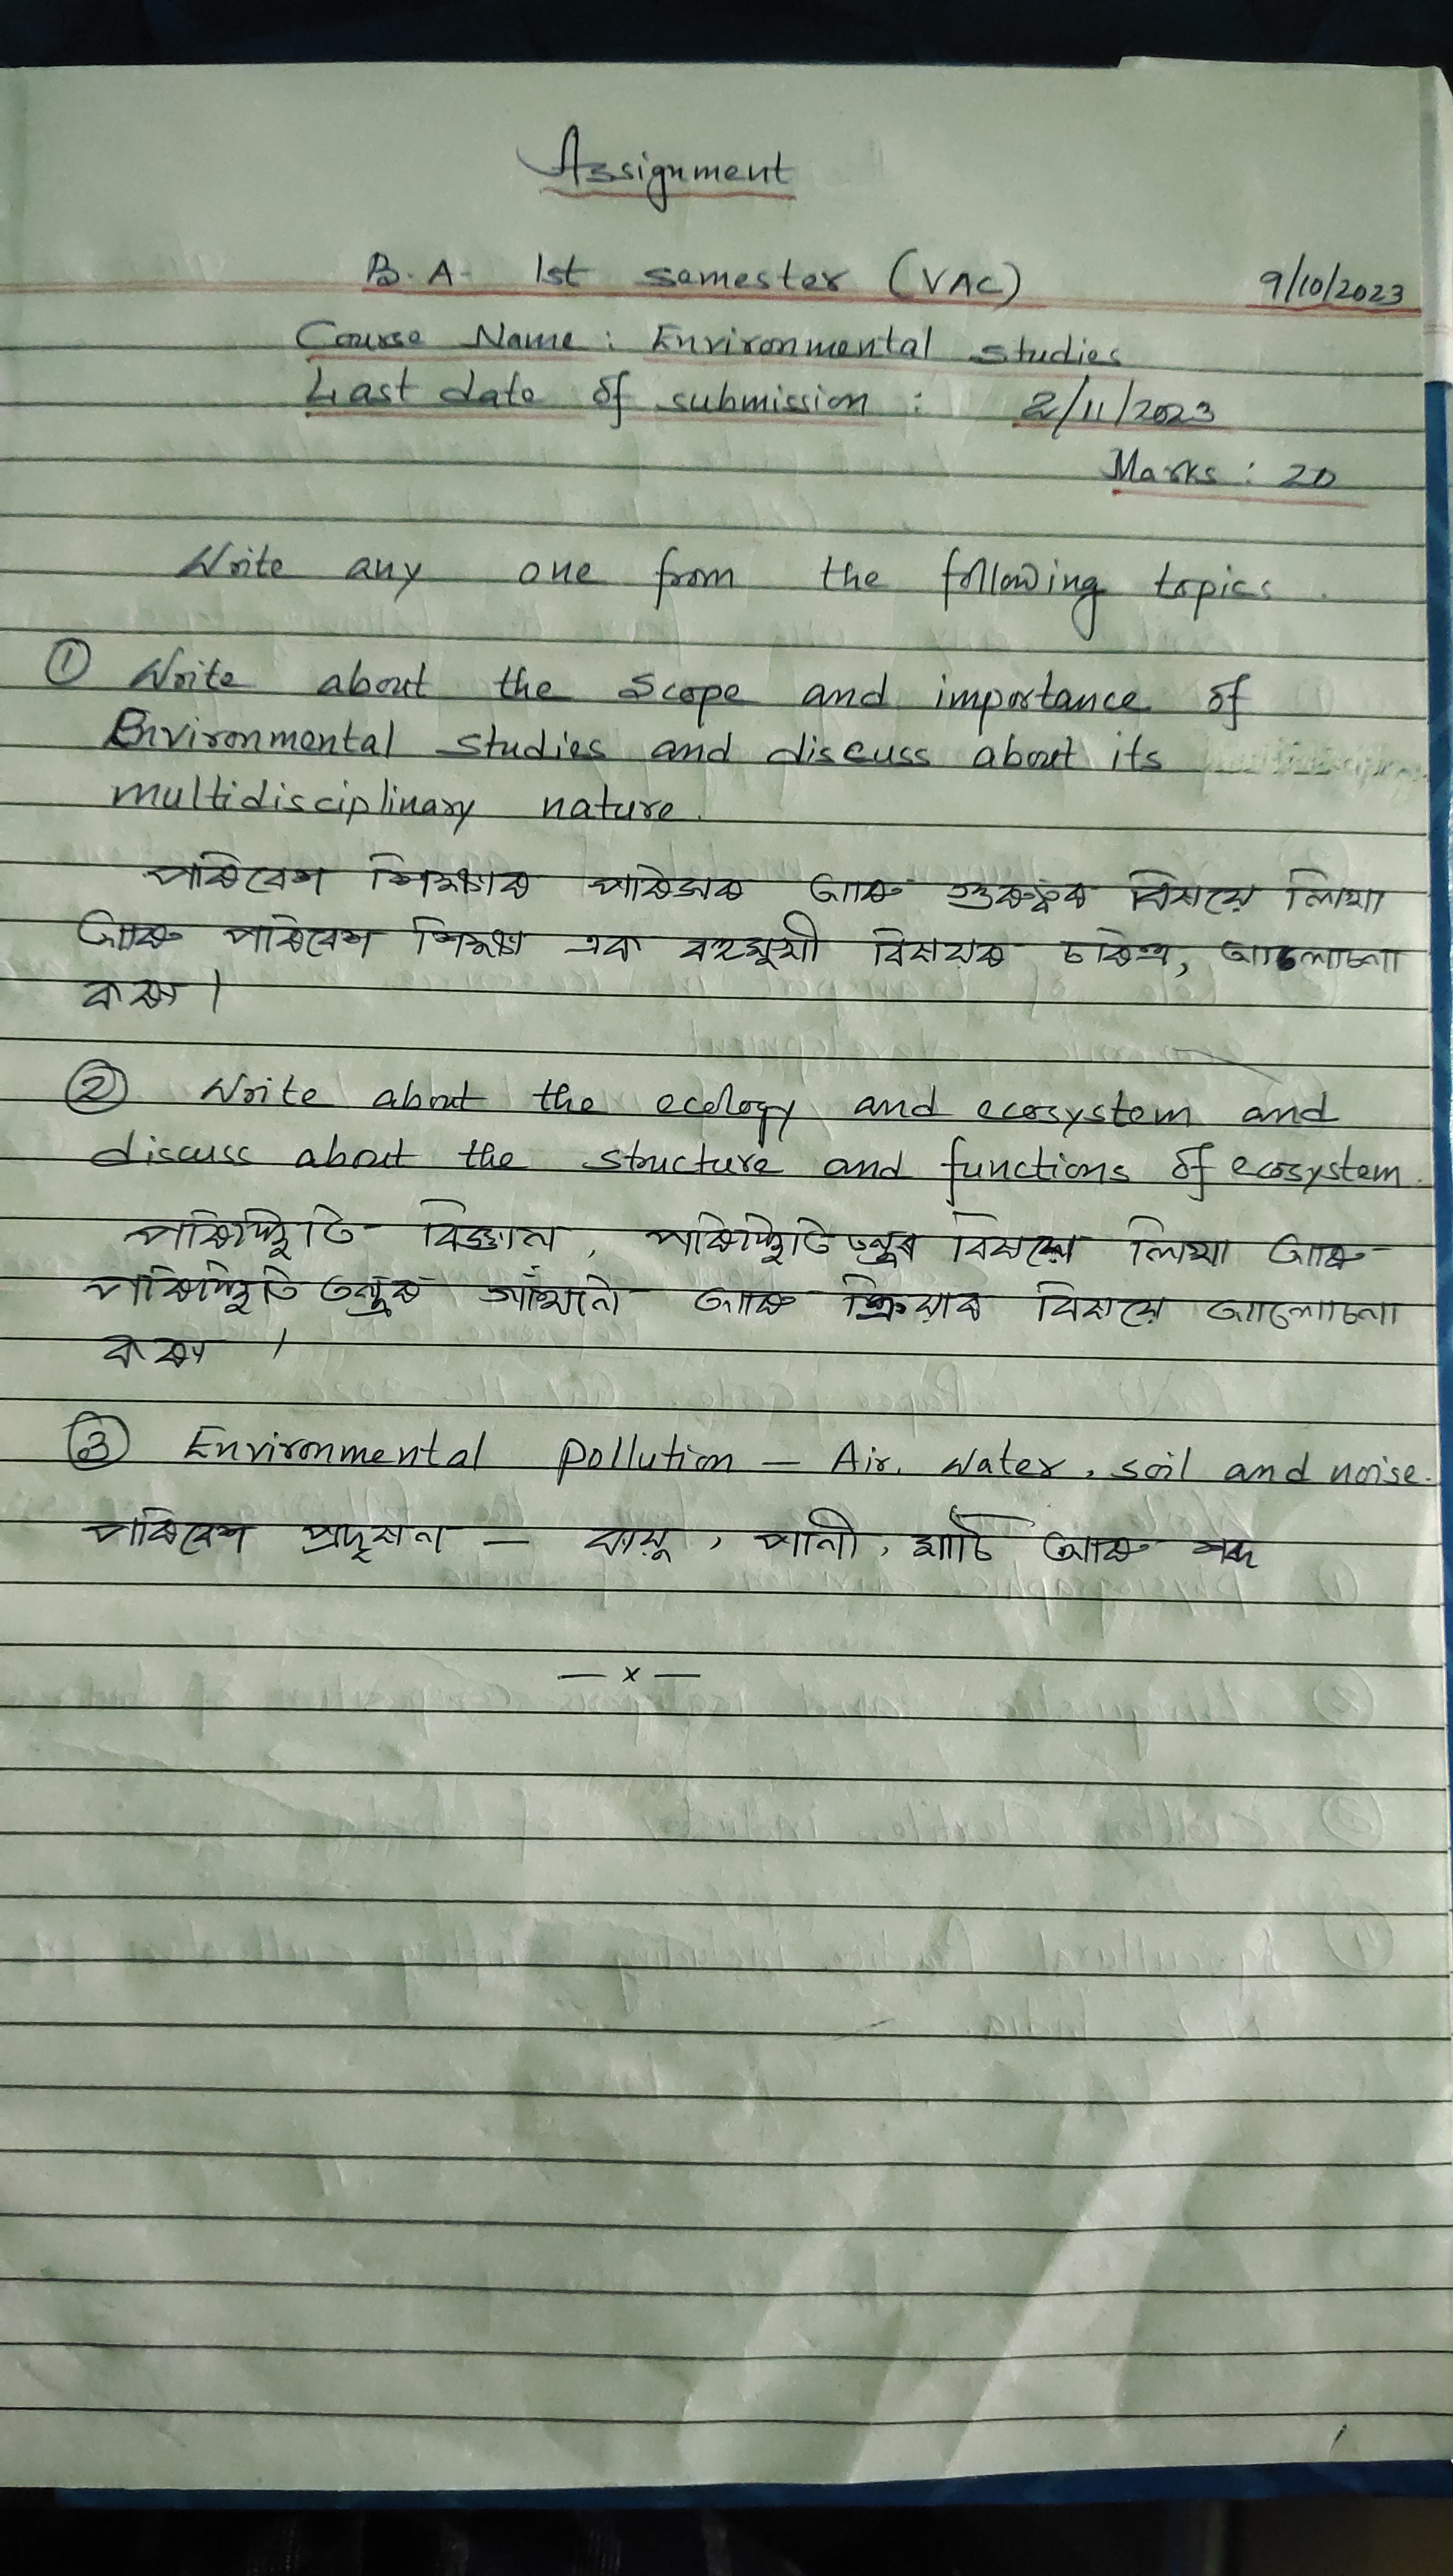 Assignment
B.A. 1st semester (VAC) 9/10/2023
Course Name : Environmental studies
Last date of submission : 2/11/2023
Marks : 20
Write any one from the following topics.
① Write about the scope and importance of
Environmental studies and discuss about its
multidisciplinary nature.
পৰিবেশ শিক্ষাৰ পৰিসৰ আৰু গুৰুত্বৰ বিষয়ে লিখা
আৰু পৰিবেশ শিক্ষা এক বহুমুখী বিষয়ৰ চৰিত্ৰ, আলোচনা
কৰা।
② Write about the ecology and ecosystem and
discuss about the structure and functions of ecosystem.
পৰিস্থিতি বিজ্ঞান, পৰিস্থিতি তন্ত্ৰৰ বিষয়ে লিখা আৰু
পৰিস্থিতি তন্ত্ৰৰ গাঁথনি আৰু ক্ৰিয়াৰ বিষয়ে আলোচনা
কৰা ।
③ Environmental pollution — Air, water, soil and noise.
পৰিবেশ প্ৰদূষণ — বায়ু, পানী, মাটি আৰু শব্দ
— x —